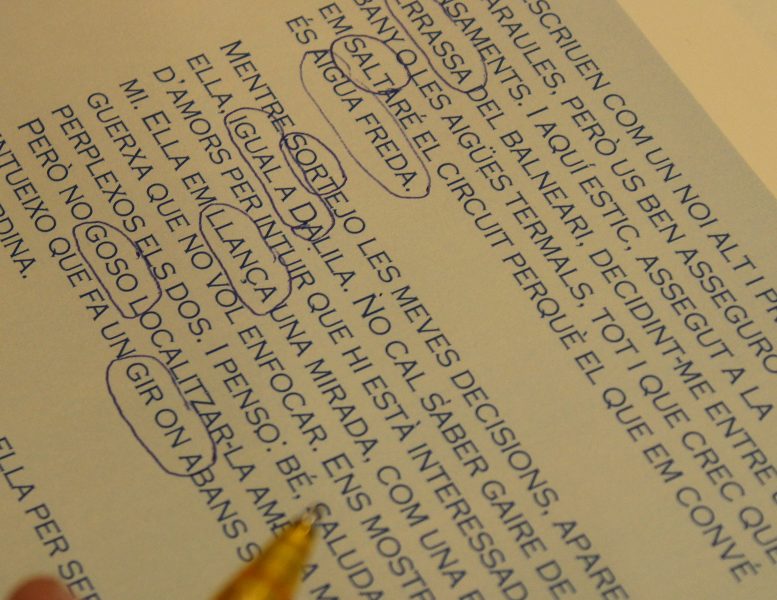 ESCRIUEN COM UN NOI ALT I PR
ARAULES, PERÒ US BEN ASSEGURO
NSAMENTS. I AQUÍ ESTIC, ASSEGUT A LA
ERRASSA DEL BALNEARI, DECIDINT-ME ENTRE
BANY O LES AIGÜES TERMALS, TOT I QUE CREC QUE
EM SALTARÉ EL CIRCUIT PERQUÈ EL QUE EM CONVÉ
ÉS AIGUA FREDA.
MENTRE SORTEJO LES MEVES DECISIONS, APARE
ELLA, IGUAL A DALILA. NO CAL SABER GAIRE DE
D'AMORS PER INTUIR QUE HI ESTÀ INTERESSAD
MI. ELLA EM LLANÇA UNA MIRADA, COM UNA
GUERXA QUE NO VOL ENFOCAR. ENS MOSTRE
PERPLEXOS ELS DOS. I PENSO: BÉ, SALUDA
PERÒ NO GOSO LOCALITZAR-LA
NTUEIXO QUE FA UN GIR ON ABANS S
RDINA.
ELLA PER SER